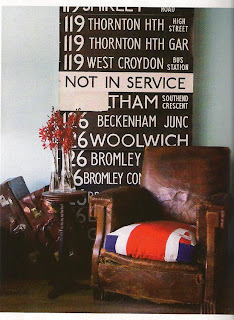 119 SHIRLEY ROAD
119 THORNTON HTH HIGH STREET
119 THORNTON HTH GAR
119 WEST CROYDON BUS STATION
NOT IN SERVICE
LTHAM SOUTHEND CRESCENT
126 BECKENHAM JUNC
26 WOOLWICH
26 BROMLEY
126 BROMLEY CO
126 BROMLEY